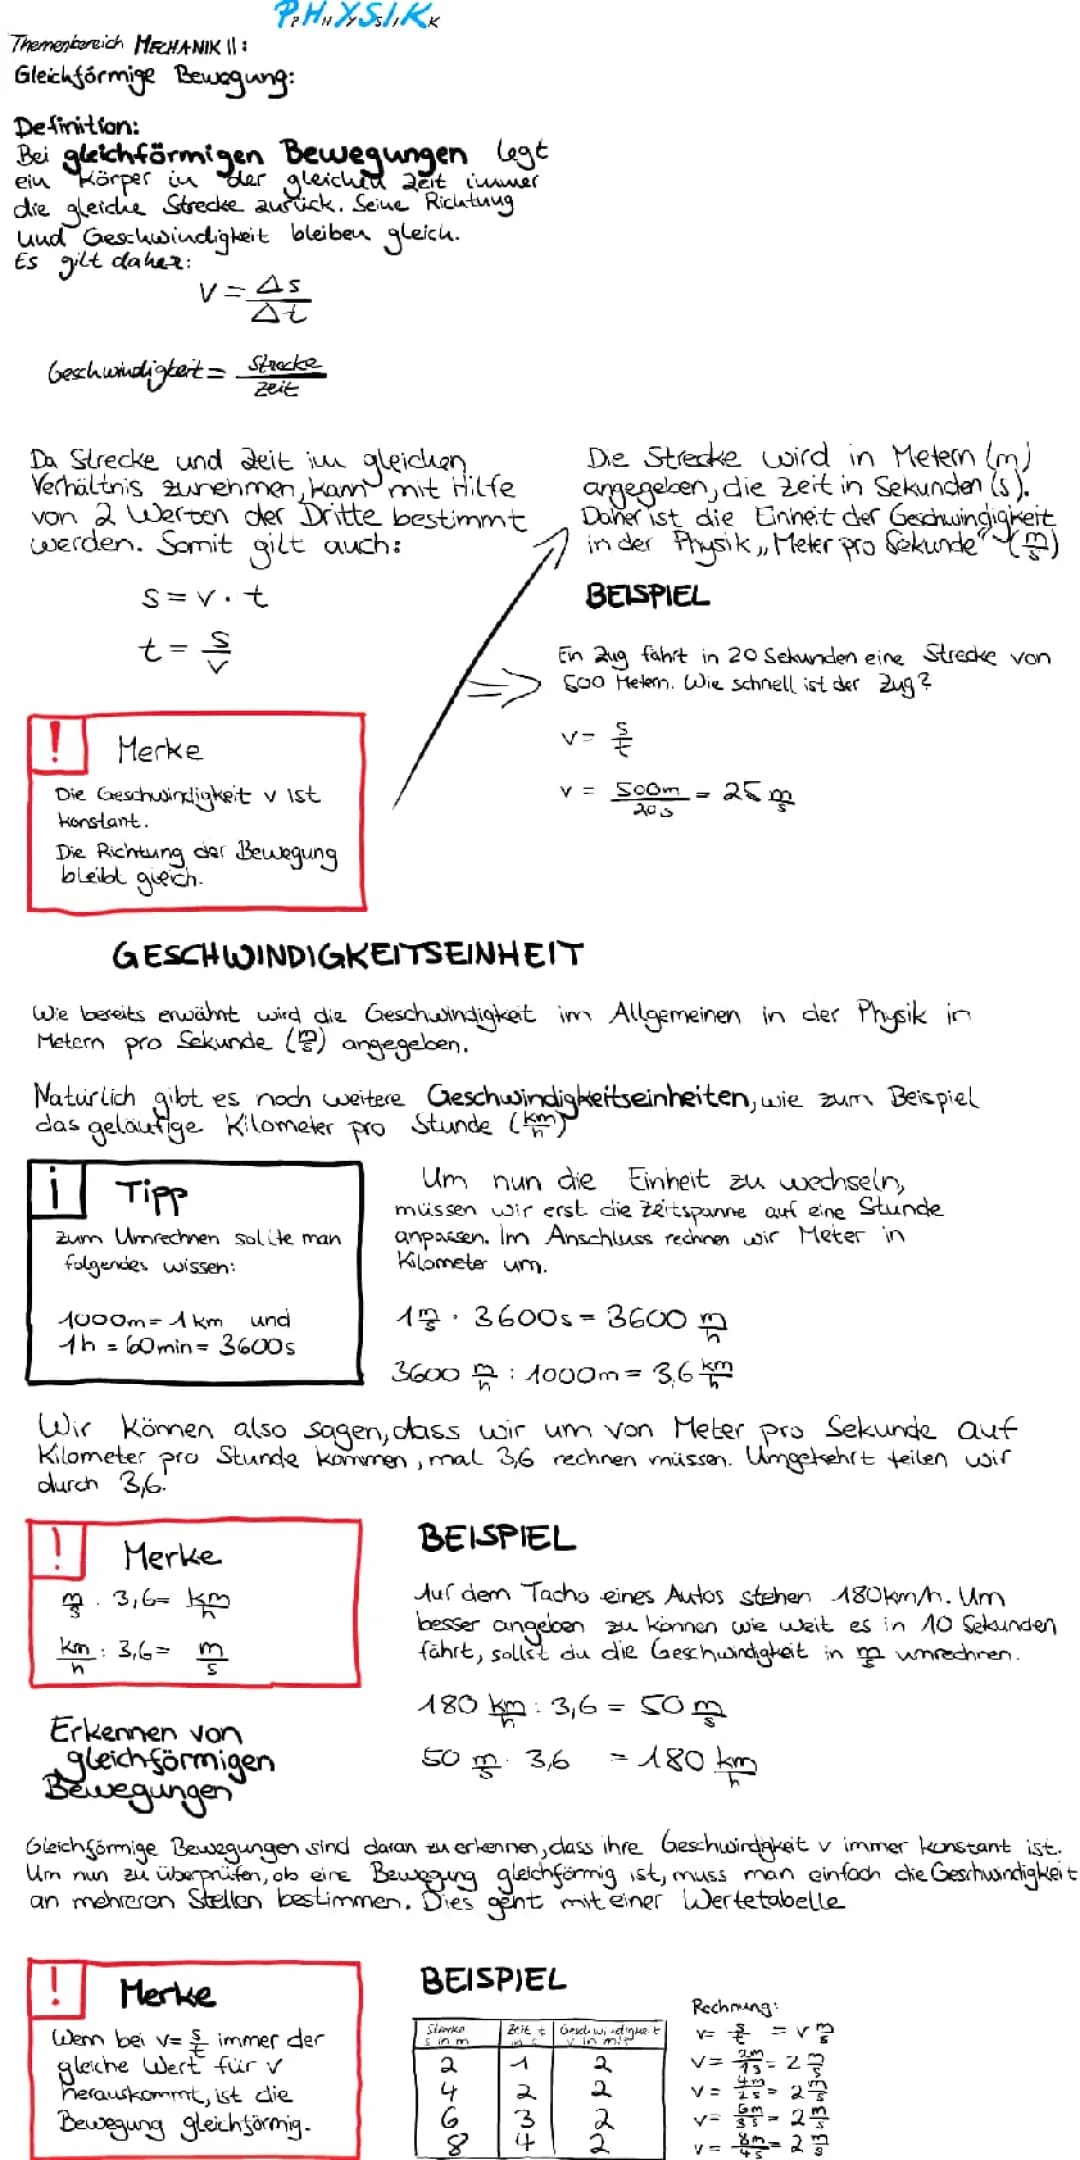 PHYSIK
Themenbereich MECHANIK II:
Gleichförmige Bewegung:
Definition:
Bei gleichförmigen Bewegungen legt
ein Körper in der gleichen Zeit immer
die gleiche Strecke zurück. Seine Richtung
und Geschwindigkeit bleiben gleich.
Es gilt daher:
v = Δs / Δt
Geschwindigkeit = Strecke / Zeit
Da Strecke und Zeit im gleichen
Verhältnis zunehmen, kann mit Hilfe
von 2 Werten der Dritte bestimmt
werden. Somit gilt auch:
s = v · t
t = s / v
! Merke
Die Geschwindigkeit v ist
konstant.
Die Richtung der Bewegung
bleibt gleich.
Die Strecke wird in Metern (m)
angegeben, die Zeit in Sekunden (s).
Daher ist die Einheit der Geschwindigkeit
in der Physik „Meter pro Sekunde" (m/s)
BEISPIEL
Ein Zug fährt in 20 Sekunden eine Strecke von
500 Metern. Wie schnell ist der Zug?
v = s/t
v = 500m / 20s = 25 m/s
GESCHWINDIGKEITSEINHEIT
Wie bereits erwähnt wird die Geschwindigkeit im Allgemeinen in der Physik in
Metern pro Sekunde (m/s) angegeben.
Natürlich gibt es noch weitere Geschwindigkeitseinheiten, wie zum Beispiel
das geläufige Kilometer pro Stunde (km/h)
i Tipp
Zum Umrechnen sollte man
folgendes wissen:
1000m = 1km und
1h = 60min = 3600s
Um nun die Einheit zu wechseln,
müssen wir erst die Zeitspanne auf eine Stunde
anpassen. Im Anschluss rechnen wir Meter in
Kilometer um.
1 m/s · 3600s = 3600 m/h
3600 m/h : 1000m = 3,6 km/h
Wir können also sagen, dass wir um von Meter pro Sekunde auf
Kilometer pro Stunde kommen, mal 3,6 rechnen müssen. Umgekehrt teilen wir
durch 3,6.
! Merke
m/s · 3,6 = km/h
km/h : 3,6 = m/s
BEISPIEL
Auf dem Tacho eines Autos stehen 180km/h. Um
besser angeben zu können wie weit es in 10 Sekunden
fährt, sollst du die Geschwindigkeit in m/s umrechnen.
180 km/h : 3,6 = 50 m/s
50 m/s · 3,6 = 180 km/h
Erkennen von
gleichförmigen
Bewegungen
Gleichförmige Bewegungen sind daran zu erkennen, dass ihre Geschwindigkeit v immer konstant ist.
Um nun zu überprüfen, ob eine Bewegung gleichförmig ist, muss man einfach die Geschwindigkeit
an mehreren Stellen bestimmen. Dies geht mit einer Wertetabelle
! Merke
Wenn bei v = s/t immer der
gleiche Wert für v
herauskommt, ist die
Bewegung gleichförmig.
BEISPIEL
Strecke s in m | Zeit t in s | Geschwindigkeit v in m/s
2 | 1 | 2
4 | 2 | 2
6 | 3 | 2
8 | 4 | 2
Rechnung:
v = s/t = v m/s
v = 2m/1s = 2 m/s
v = 4m/2s = 2 m/s
v = 6m/3s = 2 m/s
v = 8m/4s = 2 m/s